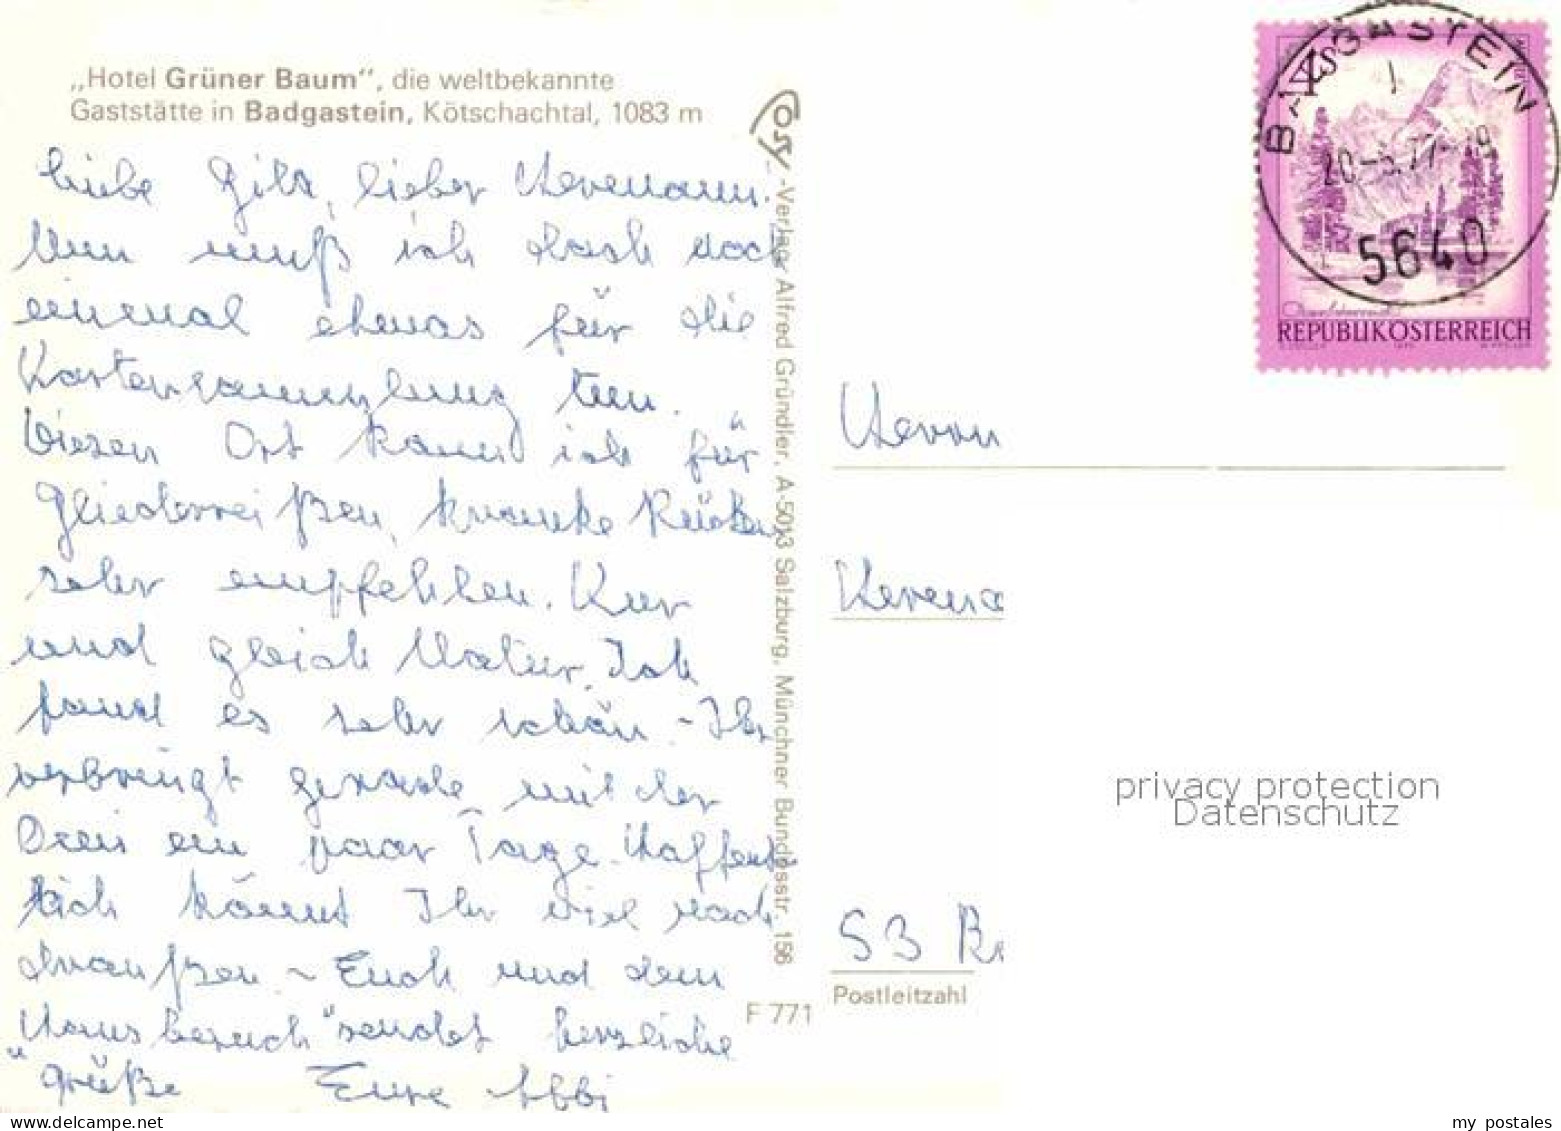 „Hotel Grüner Baum“, die weltbekannte
Gaststätte in Badgastein, Kötschachtal, 1083 m
Liebe Gila, lieber Hermann.
Nun muß ich doch noch
einmal etwas für die
Kartensammlung tun.
Diesen Ort kann ich für
Gliederreißen, kranke Rücken,
sehr empfehlen. Kur
und gleich Natur. Ich
fand es sehr schön - Ihr
verbringt gerade mit der
ein paar Tage. Hoffent
lich könnt Ihr viel nach
draußen - Euch und dem
„Hausbesuch“ sendet herzliche
Grüße Eure
Ossy-Verlag Alfred Gründler, A-5013 Salzburg, Münchner Bundesstr. 156
F 771
BADGASTEIN
20.-5.77-19
5640
4 S
REPUBLIK ÖSTERREICH
Herrn
53
Postleitzahl
privacy protection
Datenschutz
my postales